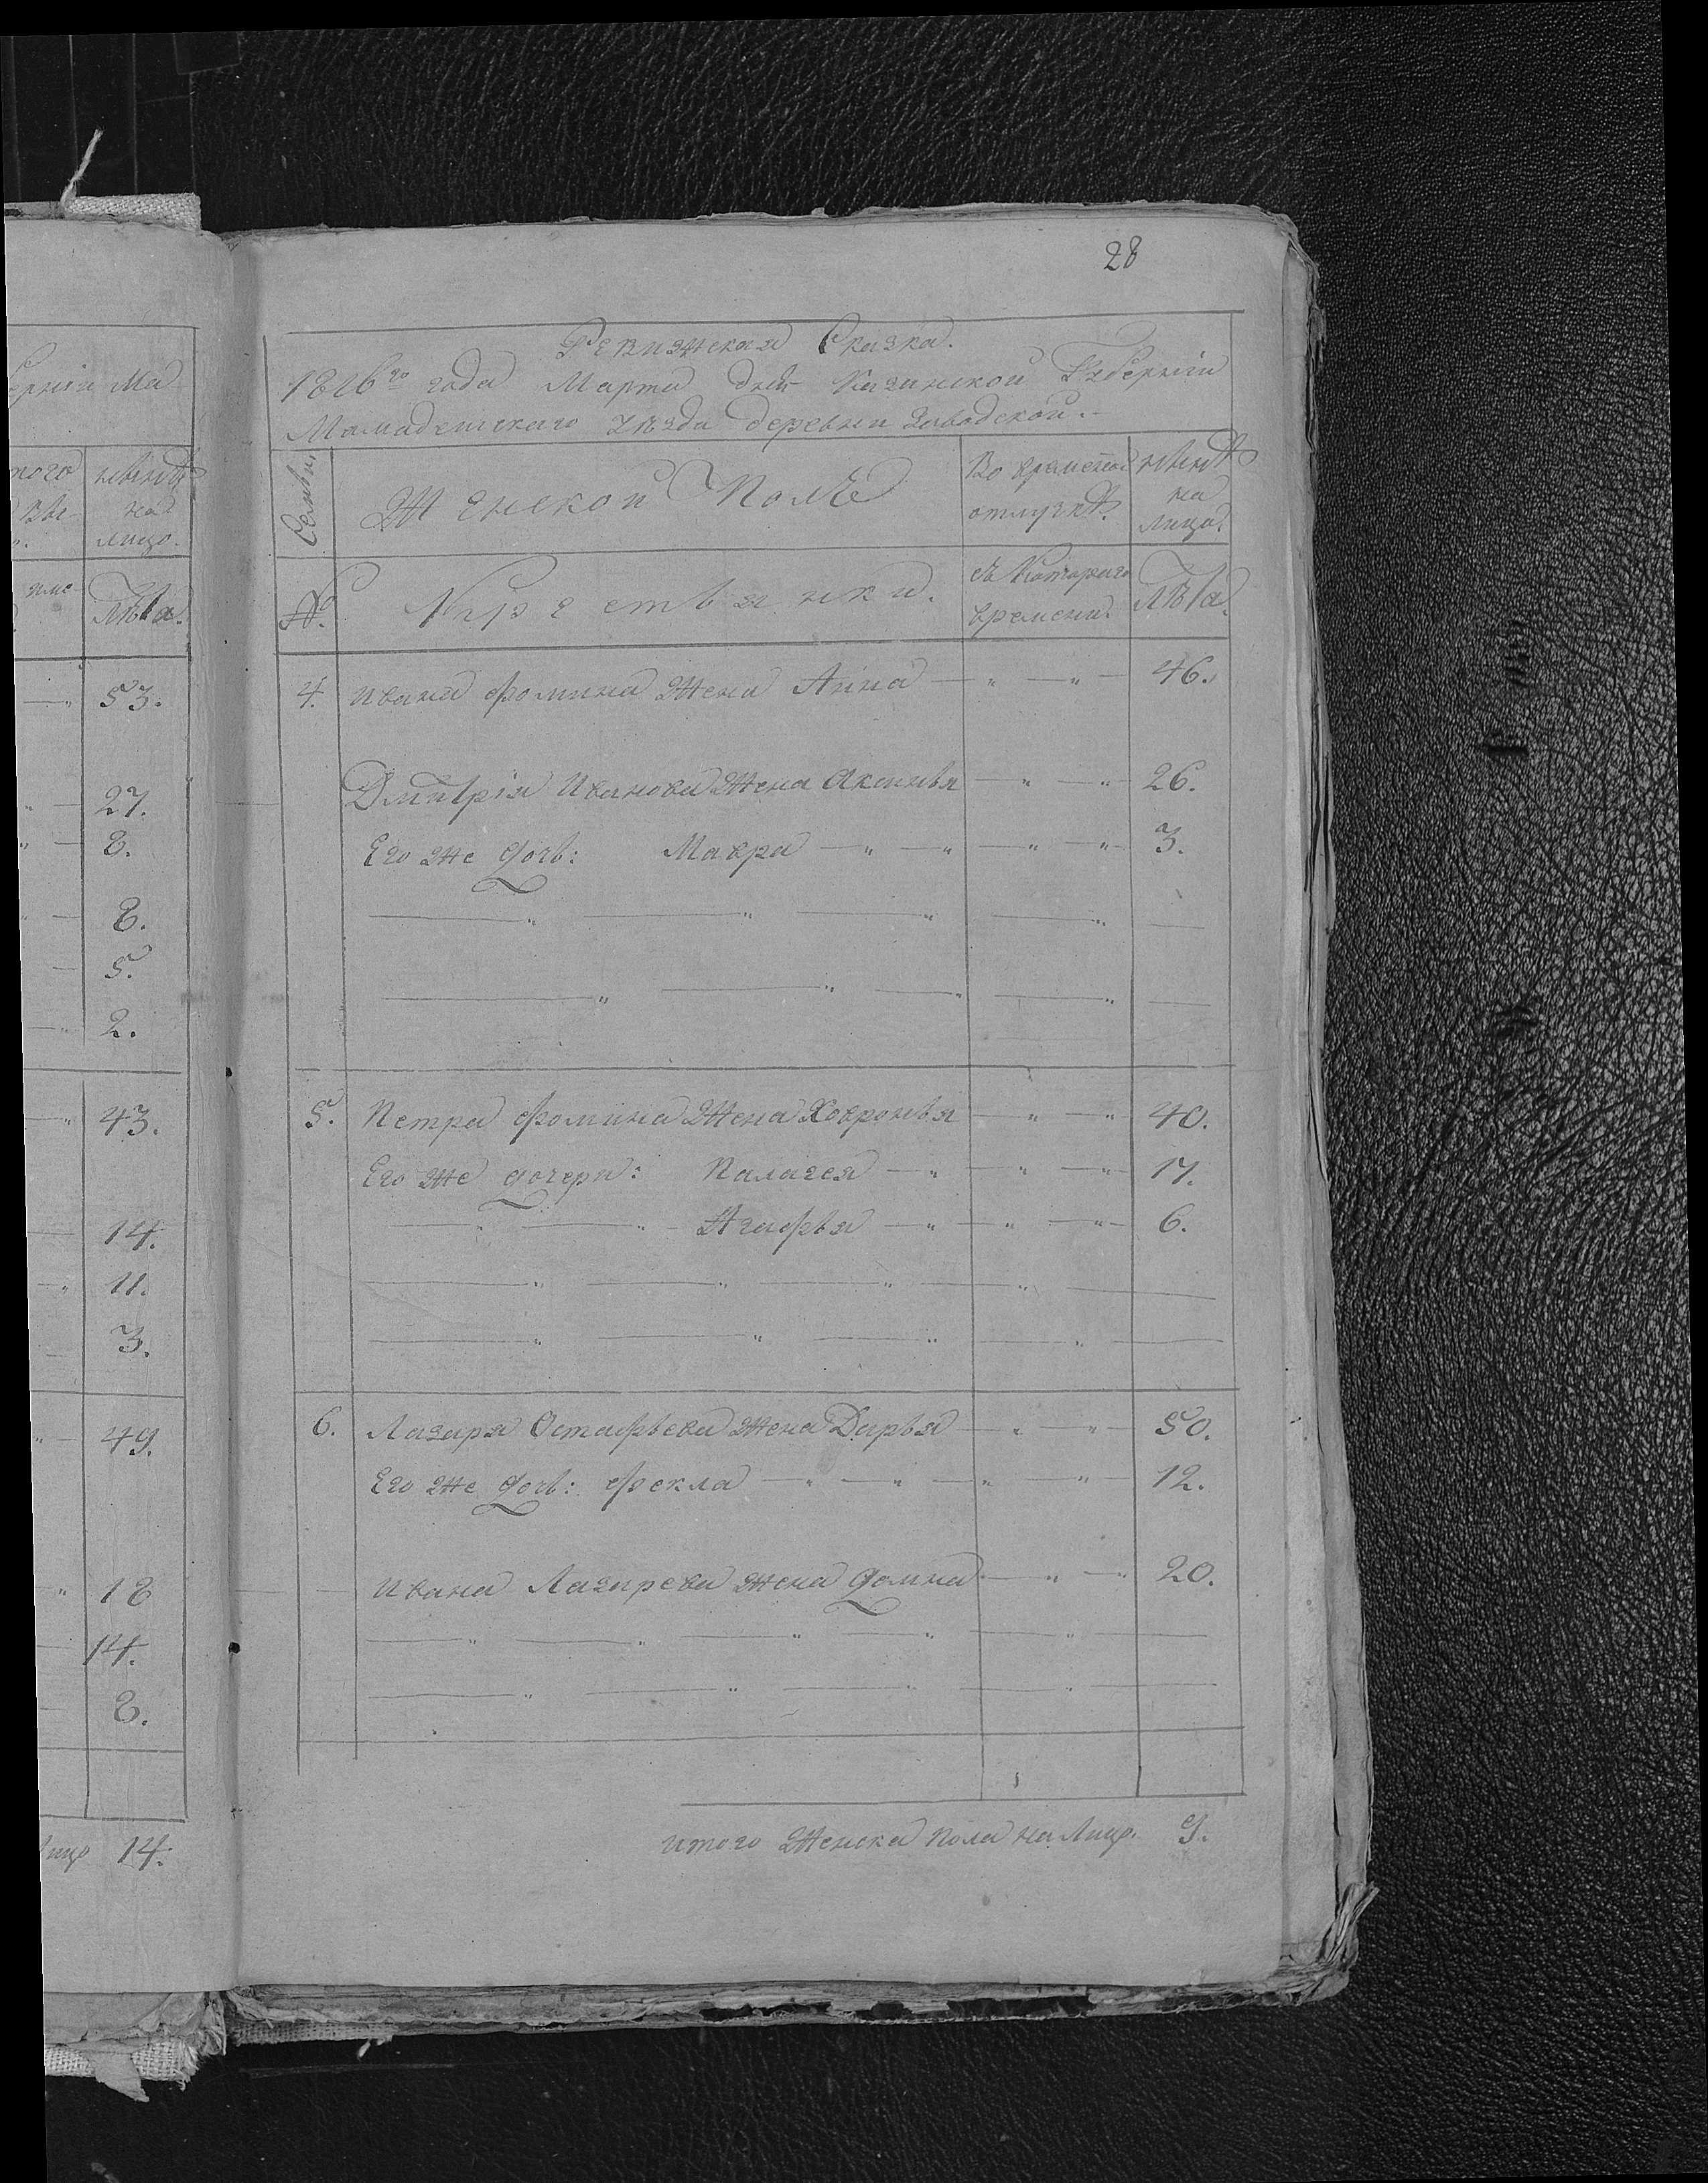 28
Ревижская Сказка.
1816го года Марта дня Казанской Губерніи
Мамадышскаго уѣзда деревни Заводской.
Семьи. Женской Полъ Во временной отлучкѣ. нынѣ на лицо.
№. Крестьянки. съ Котораго времени. Лѣта.
4. Ивана Фомина Жена Анна 46.
Дмитрія Иванова Жена Аксинья 26.
Его же дочь: Мавра 3.
5. Петра Фомина Жена Ховронья 40.
Его же дочери: Палагея 17.
Агафья 6.
6. Лазаря Остафьева Жена Дарья 50.
Его же дочь: Фекла 12.
Ивана Лазарева жена Домна 20.
итого Женска пола на Лицо. 9.
ерніи Ма
того нынѣ
на
лицо.
Лѣта.
53.
27.
8.
8.
5.
2.
43.
14.
11.
3.
49.
18
14.
8.
лицо 14.